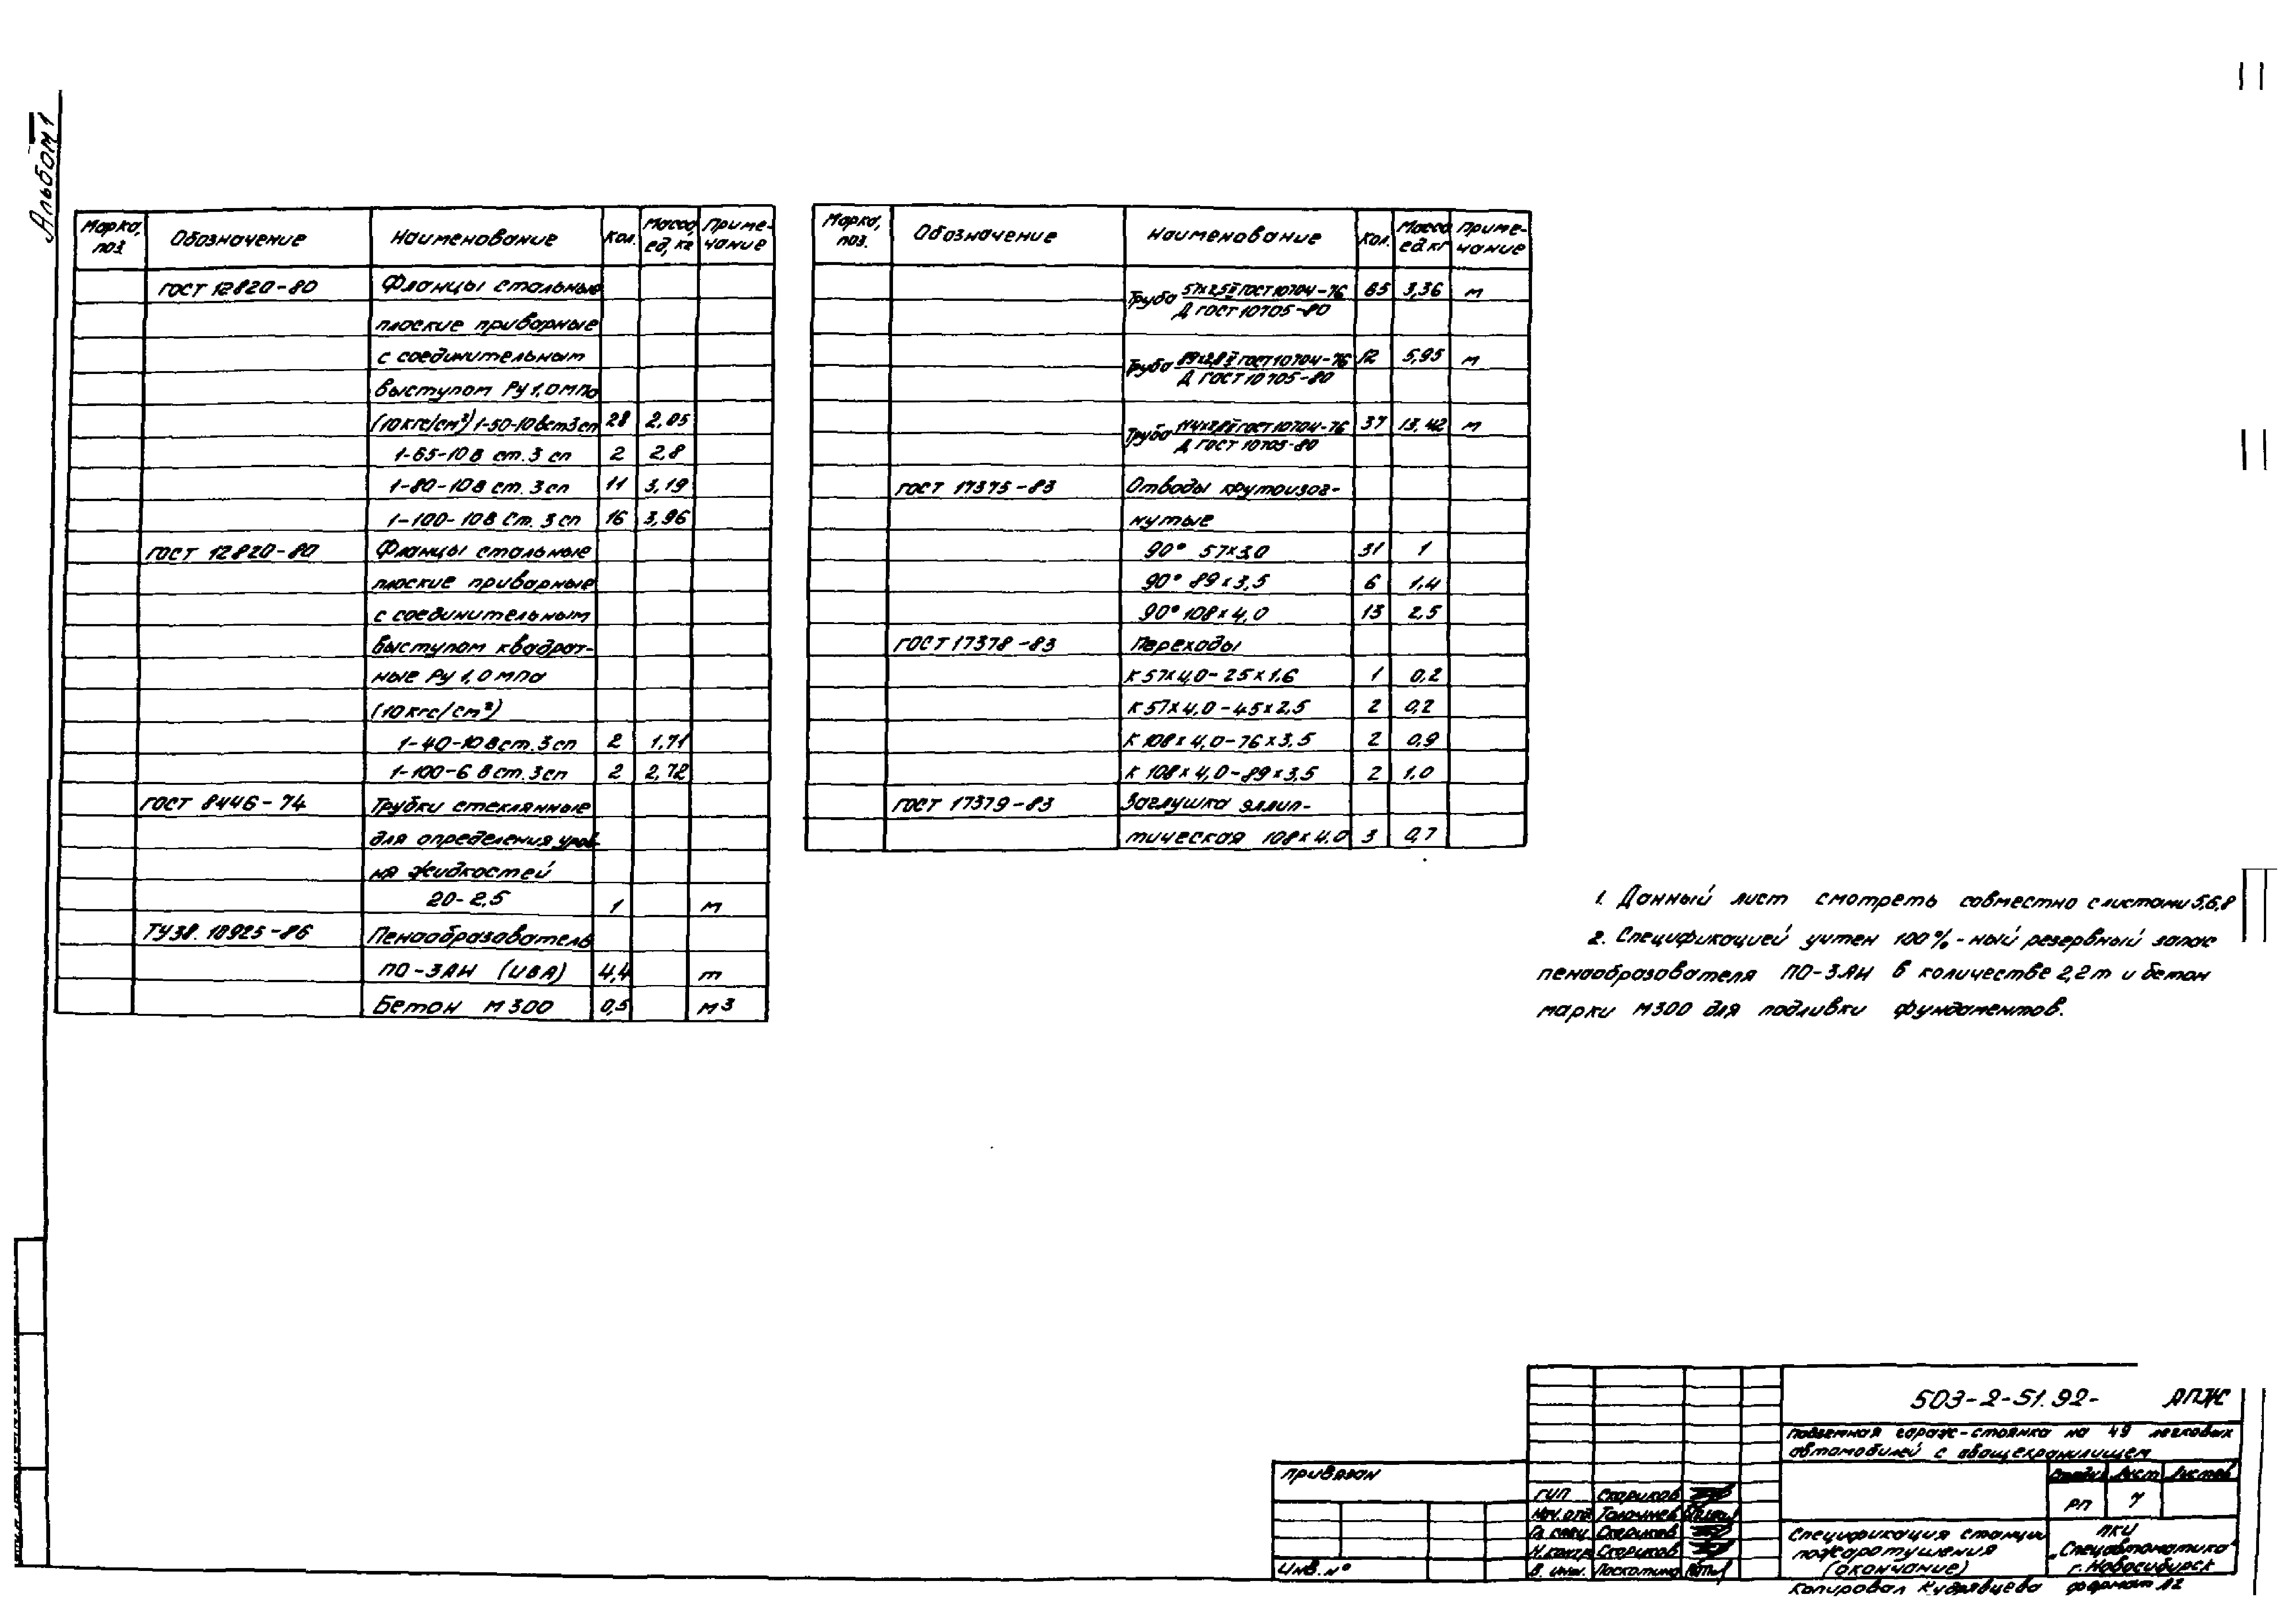 Альбом 1
Марка, поз. Обозначение Наименование Кол. Масса ед, кг Приме-чание
ГОСТ 12820-80 Фланцы стальные
плоские приварные
с соединительным
выступом Ру 1,0 мпа
(10 кгс/см²) 1-50-10 в ст 3 сп 28 2,05
1-65-10 в ст. 3 сп 2 2,8
1-80-10 в ст. 3 сп 11 3,19
1-100-10 в Ст. 3 сп 16 3,96
ГОСТ 12820-80 Фланцы стальные
плоские приварные
с соединительным
выступом квадрат-
ные Ру 1,0 мпа
(10 кгс/см²)
1-40-10 в ст. 3 сп 2 1,71
1-100-6 в ст. 3 сп 2 2,72
ГОСТ 8446-74 Трубки стеклянные
для определения уров-
ня жидкостей
20-2,5 1 м
ТУ38. 10925-86 Пенообразователь
ПО-3АИ (ИВА) 4,4 т
Бетон М 300 0,5 м3
Марка, поз. Обозначение Наименование Кол. Масса ед кг Приме-чание
Труба 57х2,5 ГОСТ 10704-76 65 3,36 м
Д ГОСТ 10705-80
Труба 89х2,8 ГОСТ 10704-76 12 5,95 м
Д ГОСТ 10705-80
Труба ГОСТ 10704-76 37 13,42 м
Д ГОСТ 10705-80
ГОСТ 17375-83 Отводы крутоизог-
нутые
90° 57х3,0 31 1
90° 89х3,5 6 1,4
90° 108х4,0 13 2,5
ГОСТ 17378-83 Переходы
К 57х4,0-25х1,6 1 0,2
К 57х4,0-45х2,5 2 0,2
К 108х4,0-76х3,5 2 0,9
К 108х4,0-89х3,5 2 1,0
ГОСТ 17379-83 Заглушка эллип-
тическая 108х4,0 3 0,7
1. Данный лист смотреть совместно с листами 5,6,8
2. Спецификацией учтен 100%-ный резервный запас
пенообразователя ПО-3АИ в количестве 2,2 т и бетон
марки М300 для подливки фундаментов.
503-2-51.92- АПЖ
Подземная гараж-стоянка на 49 легковых
автомобилей с овощехранилищем
Привязан
Стадия Лист Листов
РП 7
ГИП Скориков
Нач. отд
Гл. спец Скориков
Н. контр Скориков
В. инж. Паскотина
Инв. №
Спецификация станции
пожаротушения
(окончание)
ПКИ
„Спецавтоматика"
г. Новосибирск
Копировал Кудрявцева формат А2